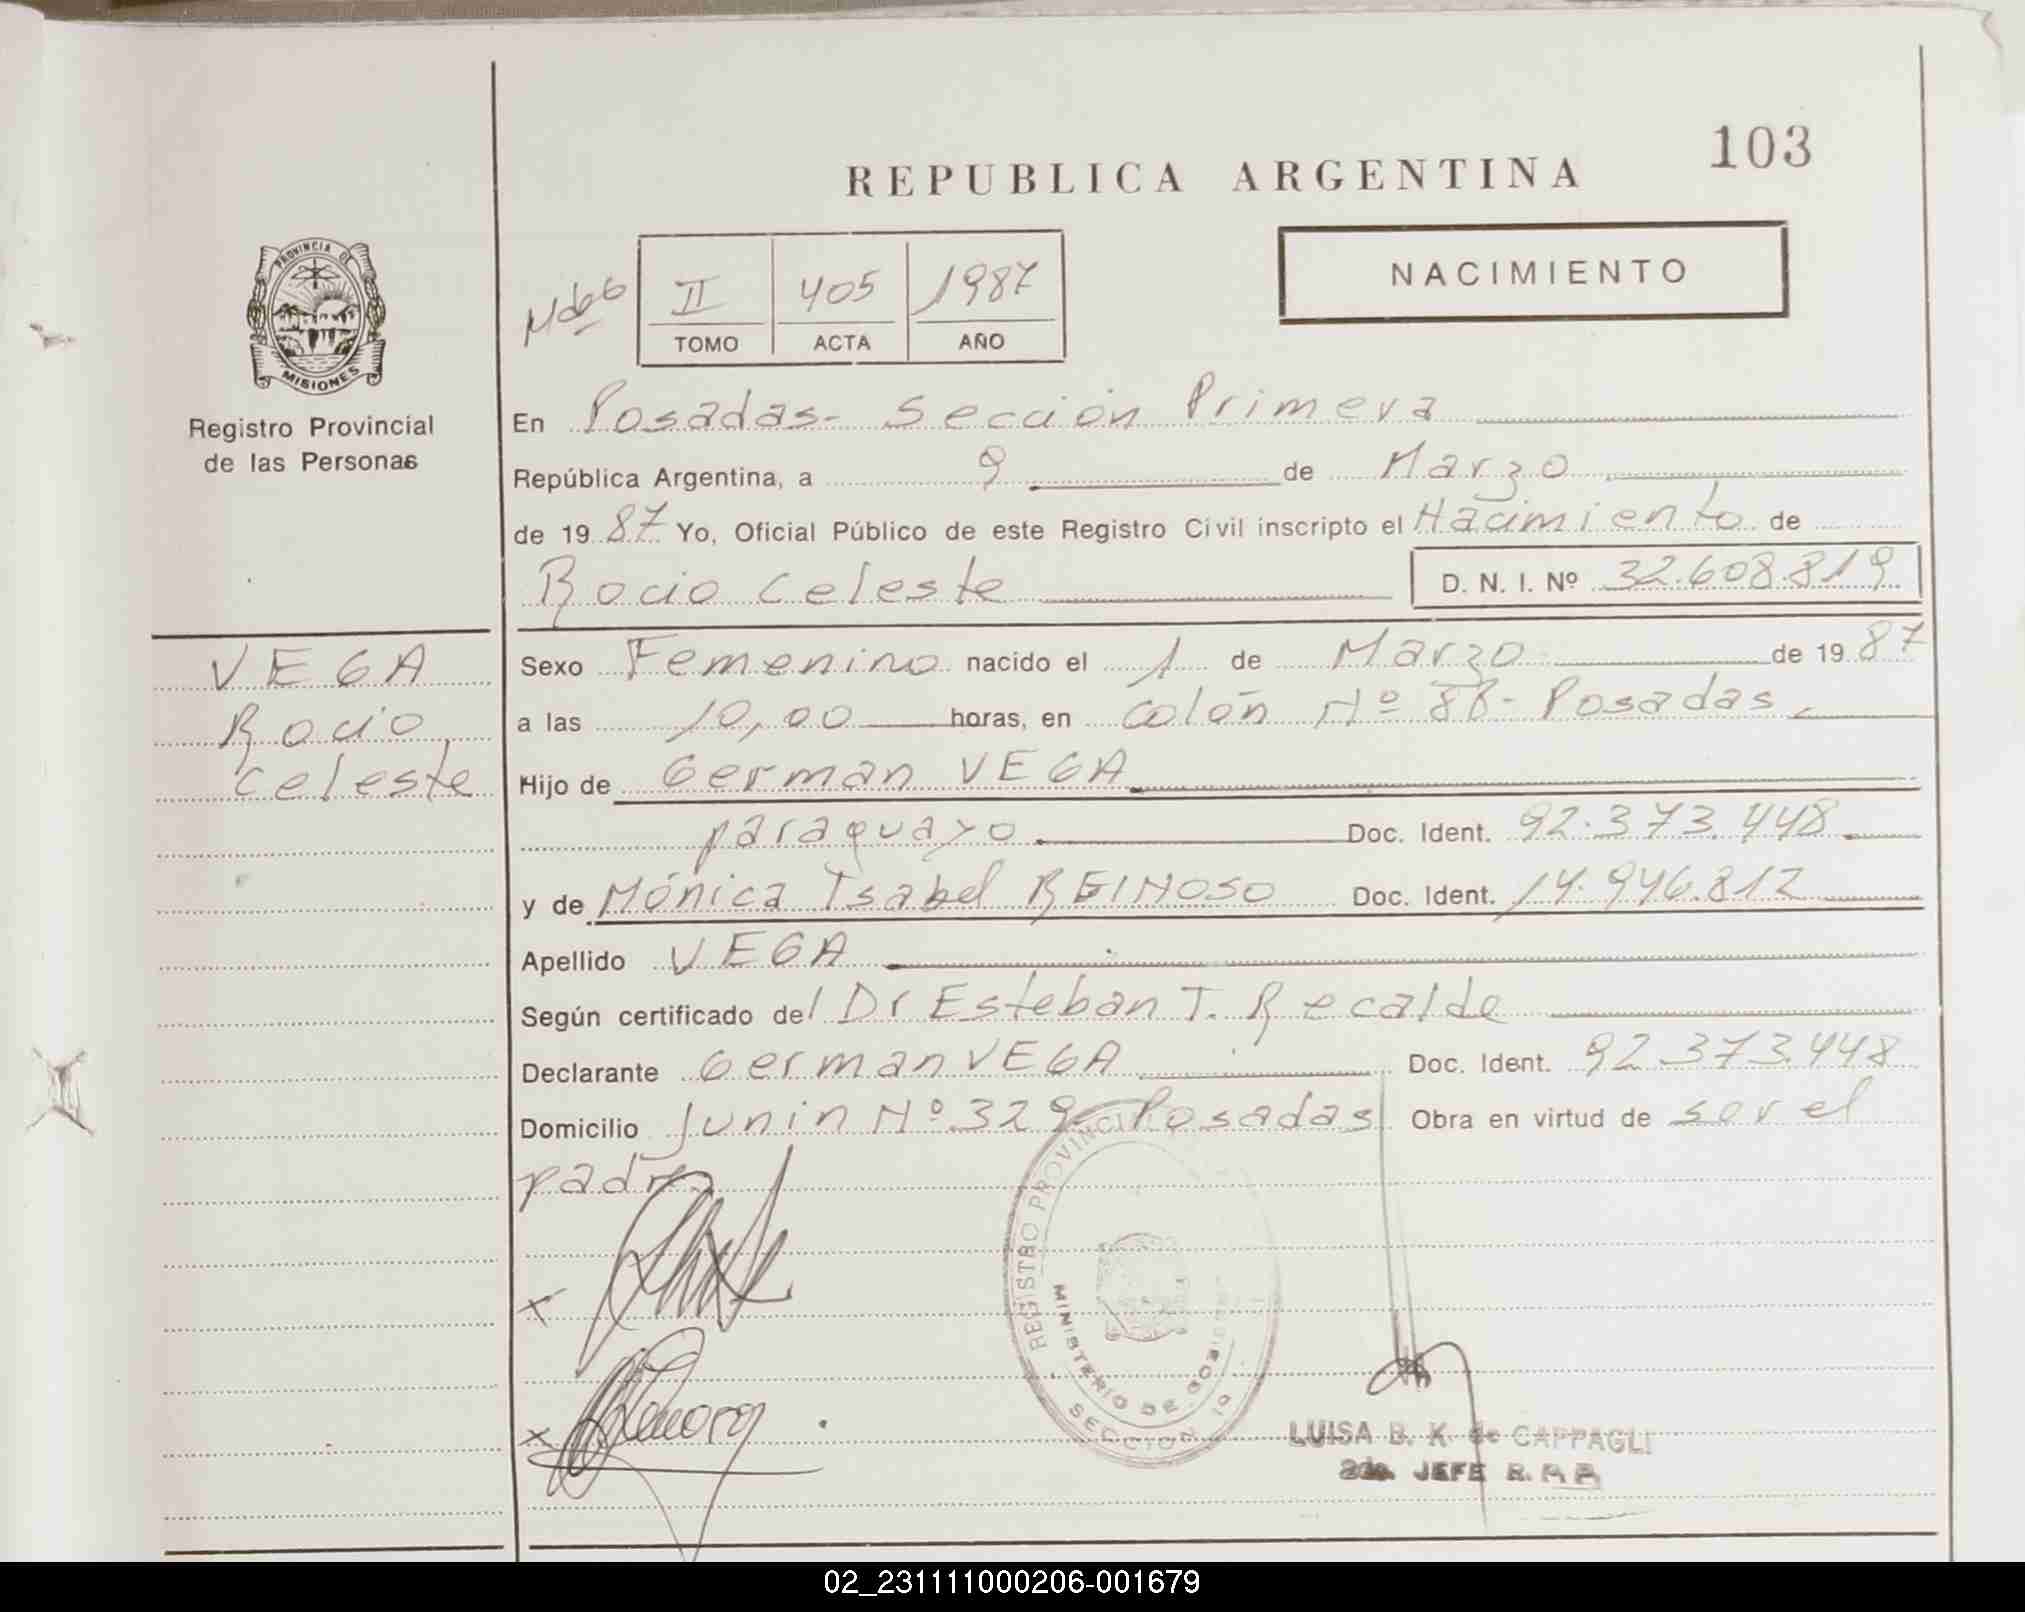 103
REPUBLICA ARGENTINA
NACIMIENTO
II 405 1987
TOMO ACTA AÑO
PROVINCIA DE
MISIONES
Registro Provincial
de las Personas
En Posadas - Sección Primera
República Argentina, a 9 de Marzo
de 19 87 Yo, Oficial Público de este Registro Civil inscripto el Nacimiento de
Rocio Celeste D. N. I. Nº 32.608.819
VEGA
Rocio
Celeste
Sexo Femenino nacido el 1 de Marzo de 19 87
a las 10,00 horas, en Colón Nº 88 - Posadas
Hijo de German VEGA
paraguayo Doc. Ident. 92.373.448
y de Mónica Isabel REINOSO Doc. Ident. 14.946.812
Apellido VEGA
Según certificado del Dr Esteban T. Recalde
Declarante German VEGA Doc. Ident. 92.373.448
Domicilio Junin Nº 329 - Posadas Obra en virtud de ser el
padre
REGISTRO PROVINCIAL
MINISTERIO DE GOBIERNO
SECCION 1º
LUISA B. K. de CAPPAGLI
2da. JEFE R.P.P.
02_231111000206-001679